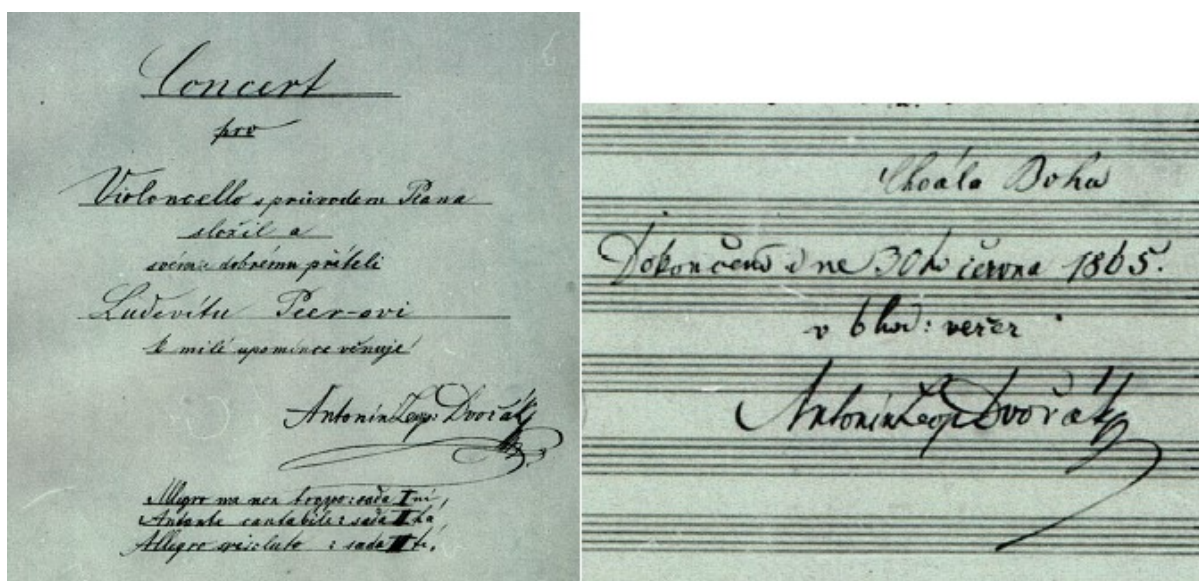 Concert
pro
Violoncello s průvodem Piana
složil a
svému dobrému příteli
Ludevítu Peer-ovi
k milé upomínce věnuje
Antonín Leop: Dvořák
Allegro ma non troppo: sada I ní,
Andante cantabile: sada II há
Allegro risoluto : sada III tí.
Chvála Bohu
Dokončeno dne 30ho června 1865.
v 6 hod: večer
Antonín Leop Dvořák